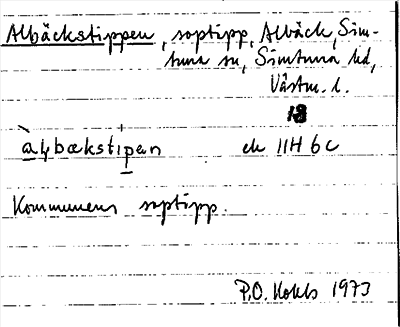 Albäckstippen, soptipp, Albäck, Sim-
tuna sn, Simtuna hd,
Västm. l.
àḷbækstipən ek 11H 6c
Kommunens soptipp.
P.O. 1973